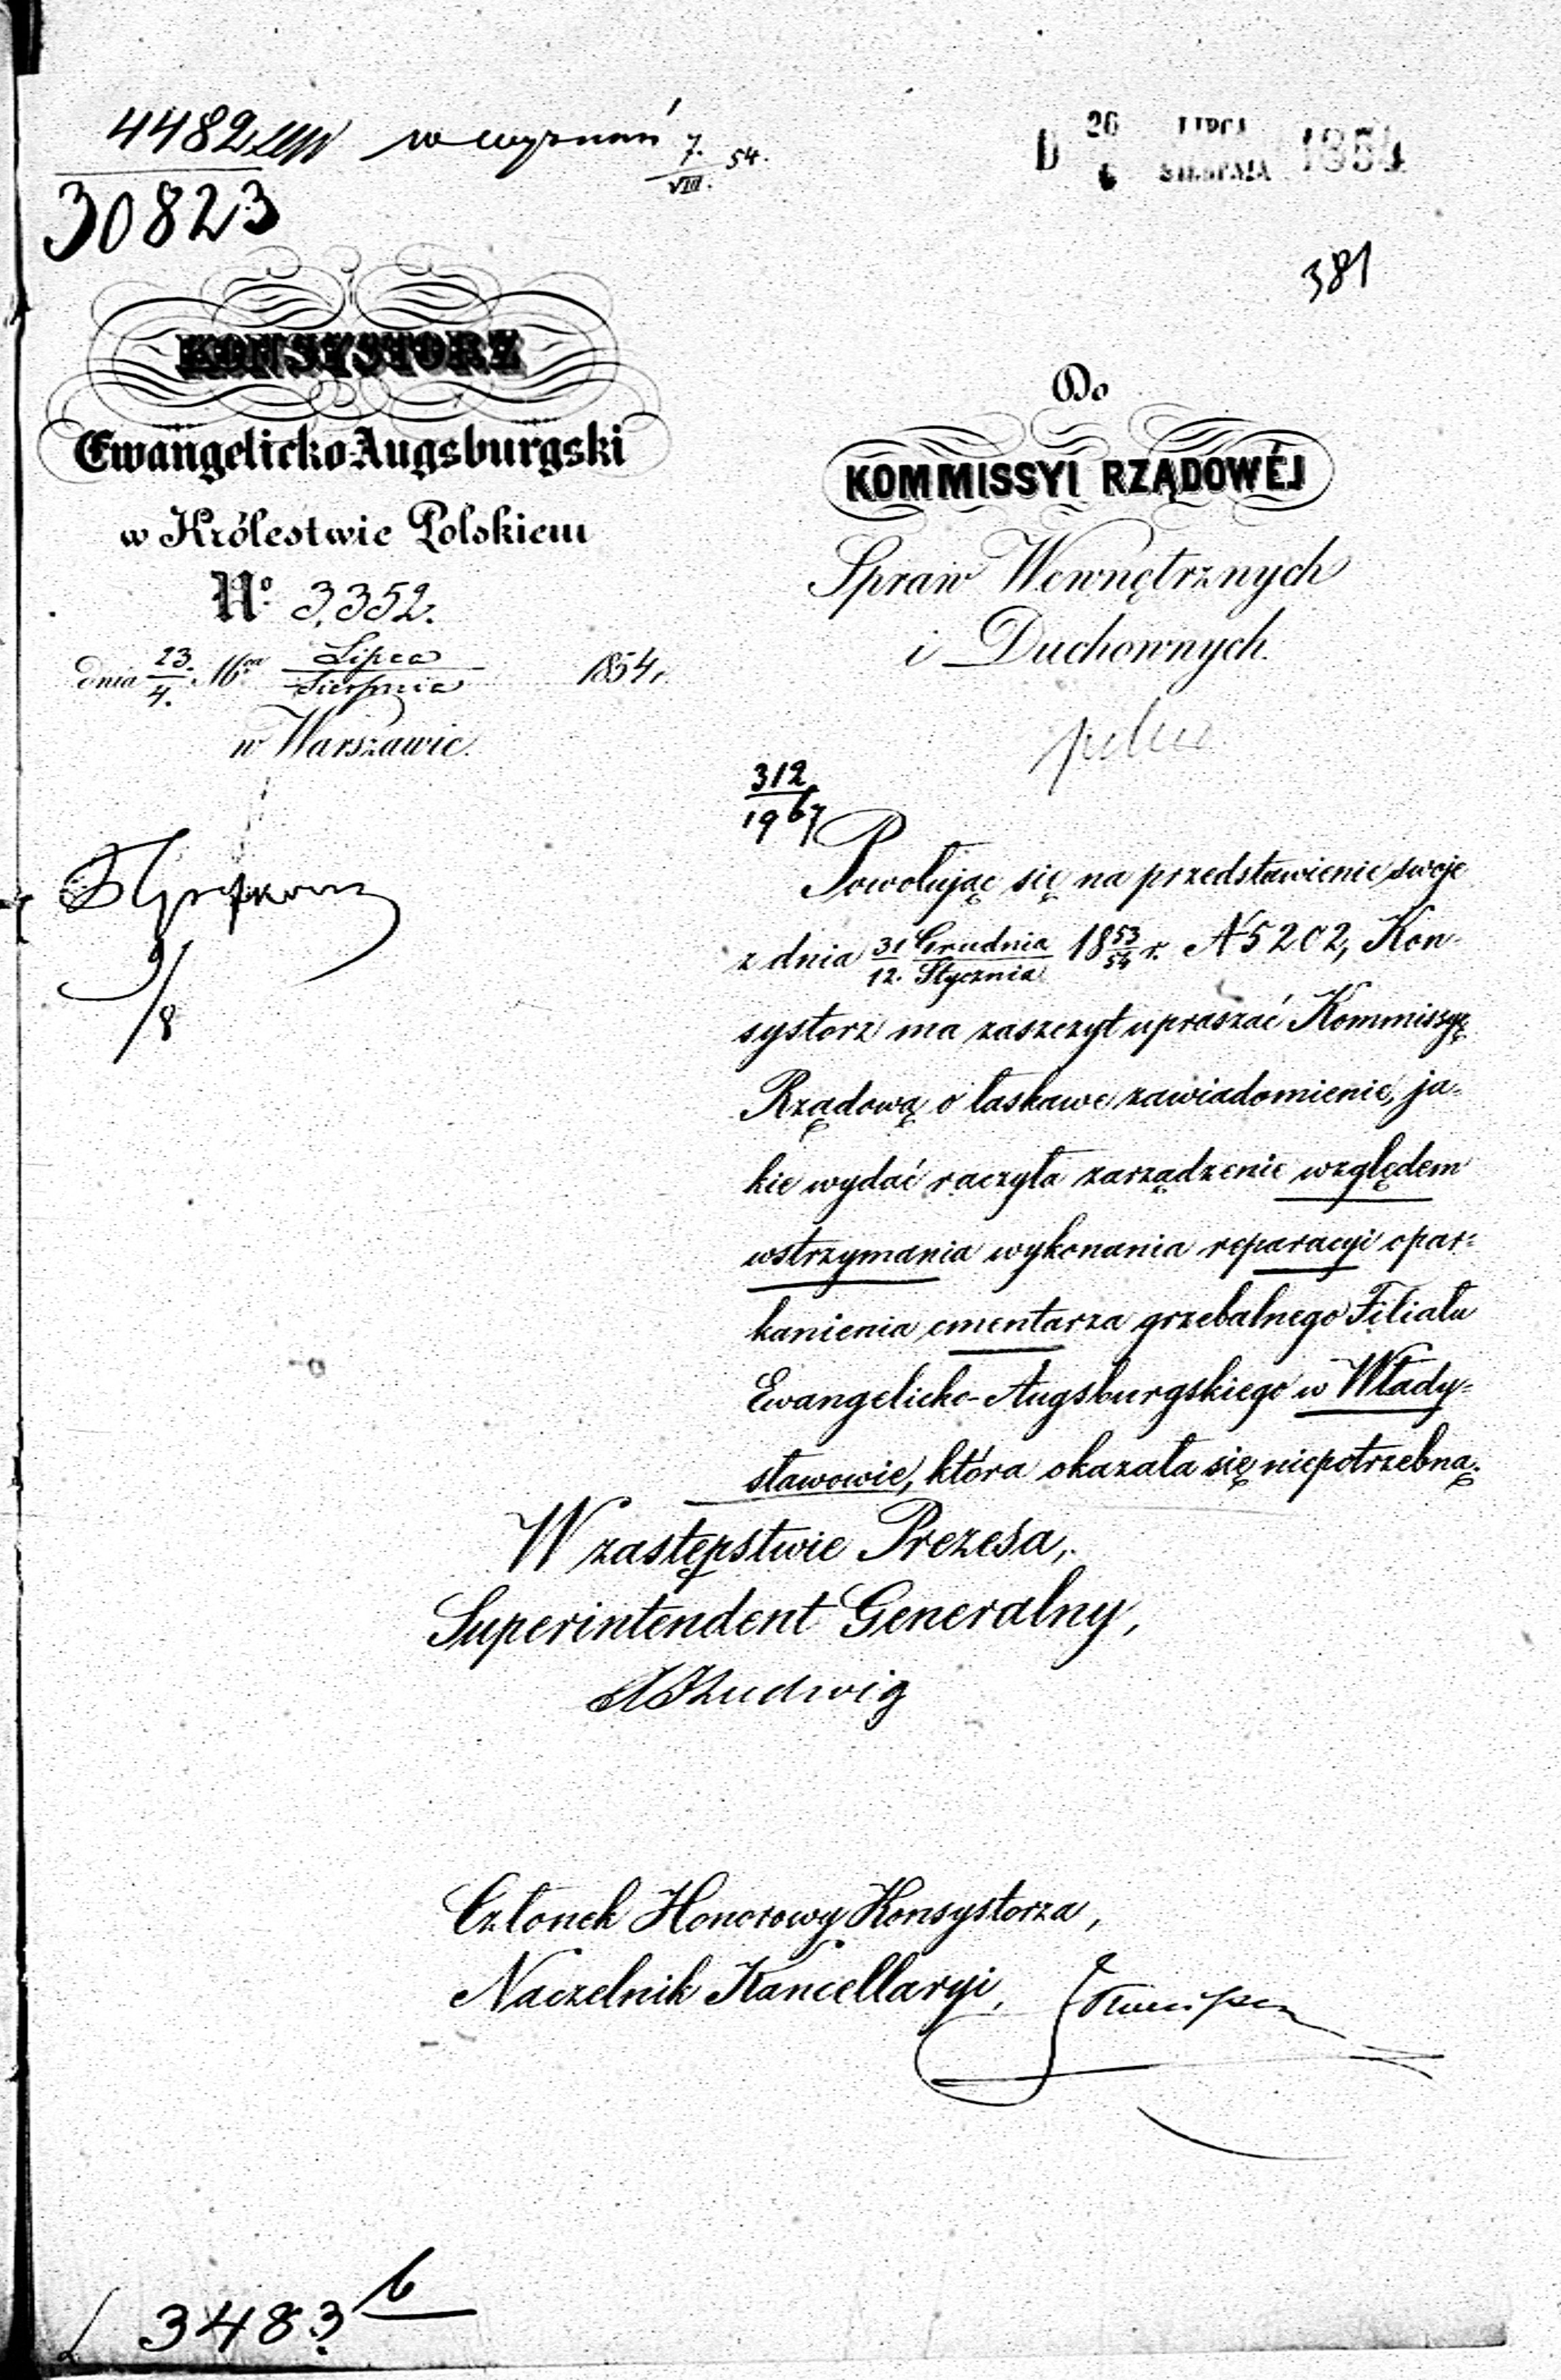 4482 w wyznań 7./VIII. 54.
30823
D 26 LIPCA 1854
6 SIERPNIA
381
KONSYSTORZ
Ewangelicko-Augsburgski
w Królestwie Polskiem
No. 3,352.
dnia 23./4. Mca Lipca/Sierpnia 1854 r.
w Warszawie.
9/8
Do
KOMMISSYI RZĄDOWÉJ
Spraw Wewnętrznych
i Duchownych.
312
19 6/7
Powołując się na przedstawienie swoje
z dnia 31 Grudnia/12. Stycznia 18 53/54 r. N 5202, Kon-
systorz ma zaszczyt upraszać Kommissyę
Rządową o łaskawe zawiadomienie, ja-
kie wydać raczyła zarządzenie względem
wstrzymania wykonania reparacyi opar-
kanienia cmentarza grzebalnego Filiału
Ewangelicko-Augsburgskiego w Włady-
sławowie, która okazała się niepotrzebną.
W zastępstwie Prezesa,
Superintendent Generalny,
Ludwig
Członek Honorowy Konsystorza,
Naczelnik Kancellaryi,
3483 b